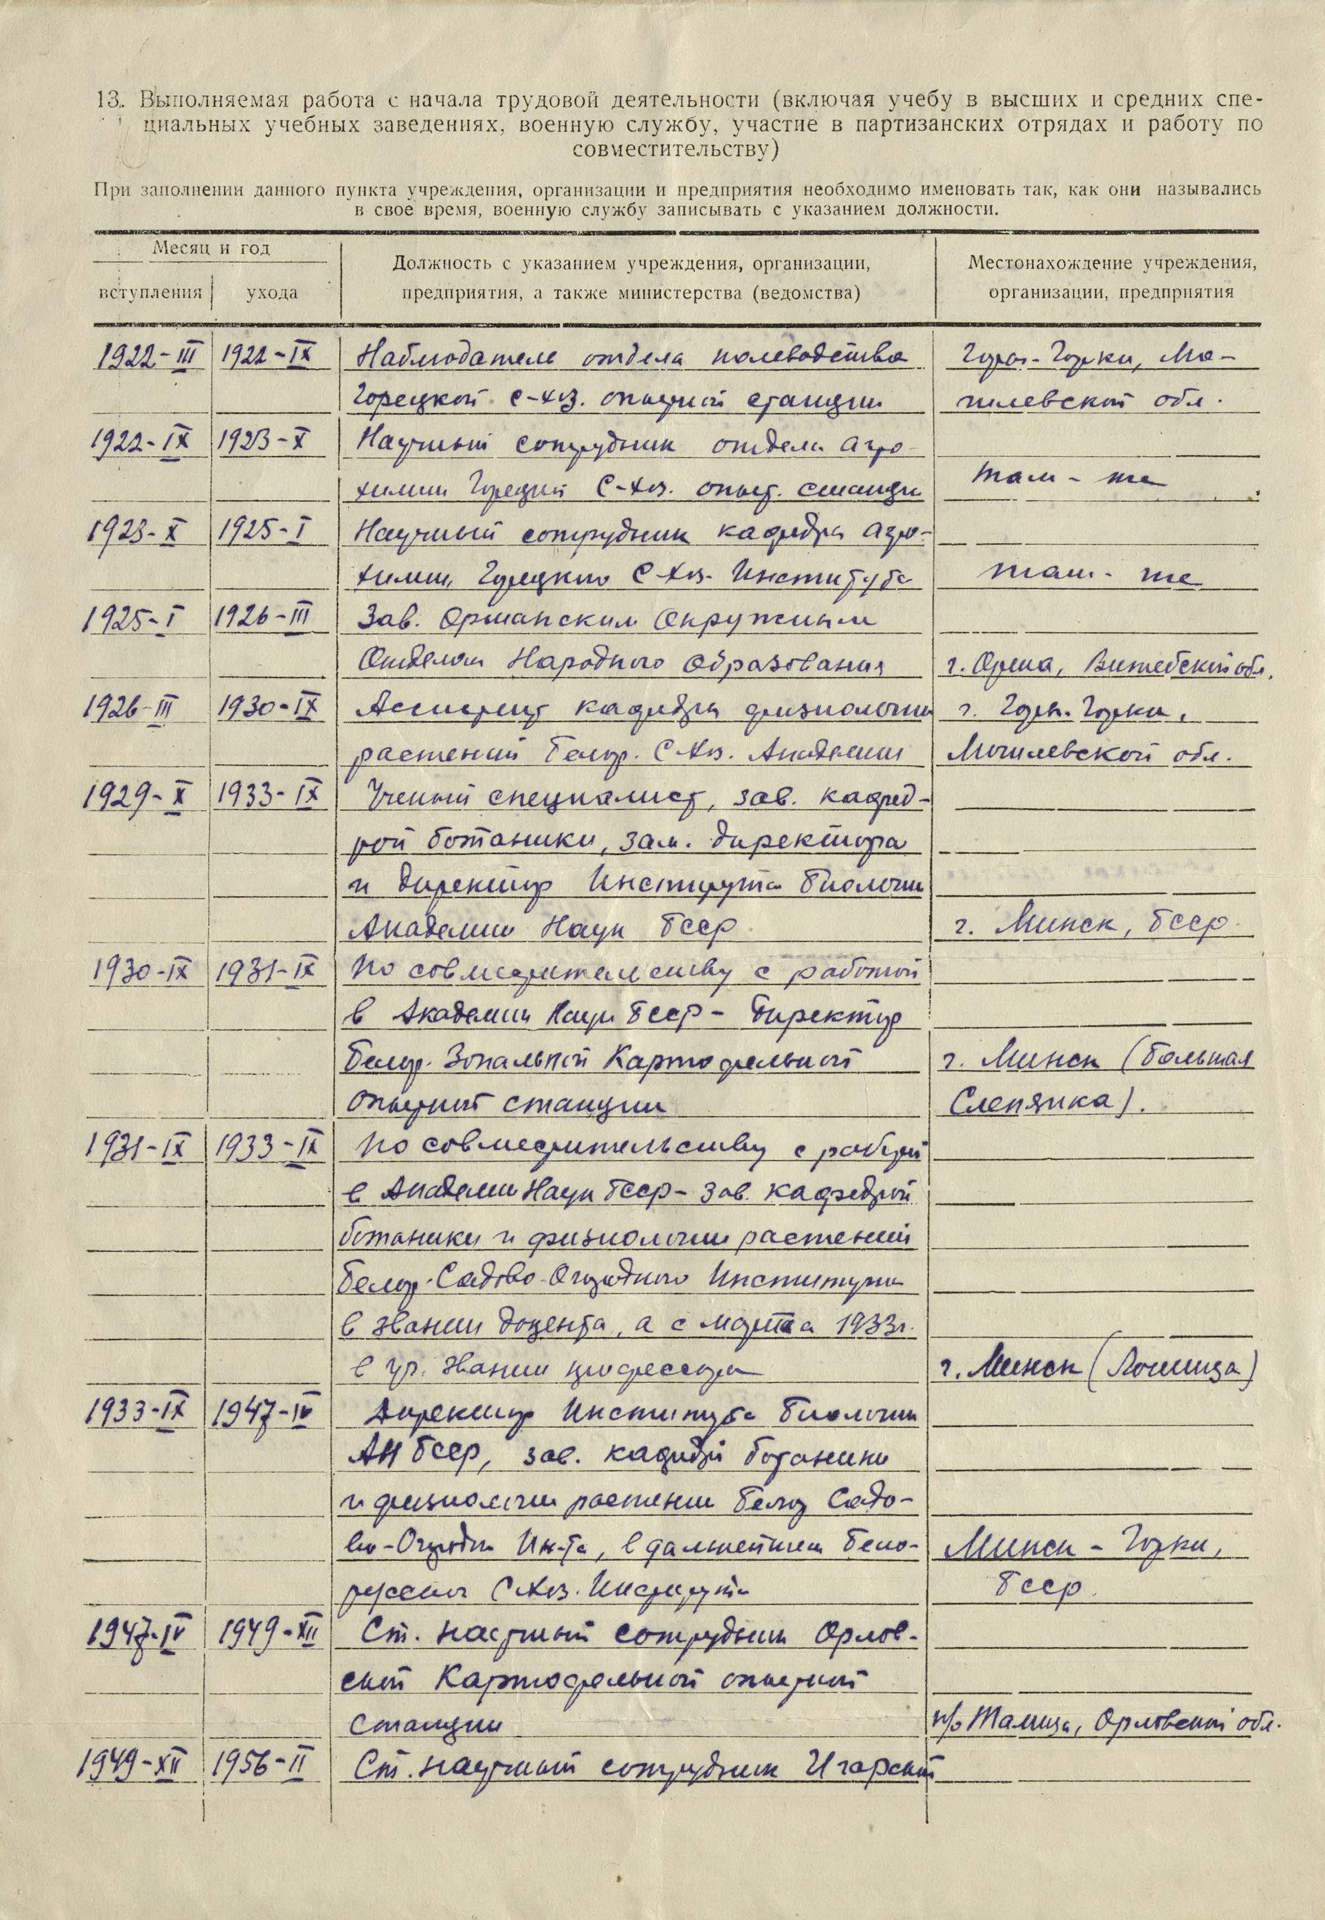 13. Выполняемая работа с начала трудовой деятельности (включая учебу в высших и средних спе-
циальных учебных заведениях, военную службу, участие в партизанских отрядах и работу по
совместительству)
При заполнении данного пункта учреждения, организации и предприятия необходимо именовать так, как они назывались
в свое время, военную службу записывать с указанием должности.
Месяц и год
вступления
ухода
Должность с указанием учреждения, организации,
предприятия, а также министерства (ведомства)
Местонахождение учреждения,
организации, предприятия
1922-III 1922-IX Наблюдатель отдела полеводства Горы-Горки, Мо-
Горецкой с-хоз. опытной станции гилевской обл.
1922-IX 1923-X Научный сотрудник отдела агро-
химии Горецкой С-хоз. опыт. станции там-же
1923-X 1925-I Научный сотрудник кафедры агро-
химии, Горецкого С-Хоз. Института там-же
1925-I 1926-III Зав. Оршанским Окружным
Отделом Народного Образования г. Орша, Витебской обл.
1926-III 1930-IX Ассистент кафедры физиологии г. Горы-Горки,
растений Белор. С-Хоз. Академии Могилевской обл.
1929-X 1933-IX Ученый специалист, зав. кафед-
рой ботаники, зам. директора
и директор Института Биологии
Академии Наук БССР г. Минск, БССР
1930-IX 1931-IX По совместительству с работой
в Академии Наук БССР - директор
Белор. Зональной Картофельной г. Минск (Большая
опытной станции Слепянка).
1931-IX 1933-IX По совместительству с работой
в Академии Наук БССР - зав. кафедрой
ботаники и физиологии растений
Белор. Садово-Огородного Института
в звании доцента, а с марта 1933г.
в уч. звании профессора г. Минск (Лошица)
1933-IX 1947-IV Директор Института Биологии
АН БССР, зав. кафедрой ботаники
и физиологии растений Белор Садо-
во-Огородн Ин-та, в дальнейшем Бело- Минск - Горки,
русского С-Хоз. Института БССР
1947-IV 1949-XII Ст. научный сотрудник Орлов-
ской Картофельной опытной
станции п/о Жалица, Орловской обл.
1949-XII 1956-II Ст. научный сотрудник Игарской